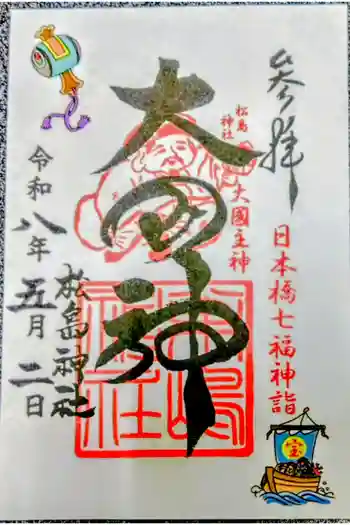 参拝
日本橋七福神詣
松島
神社
大國主神
大国神
松嶋
神社
松島神社
令和八年五月二日
宝